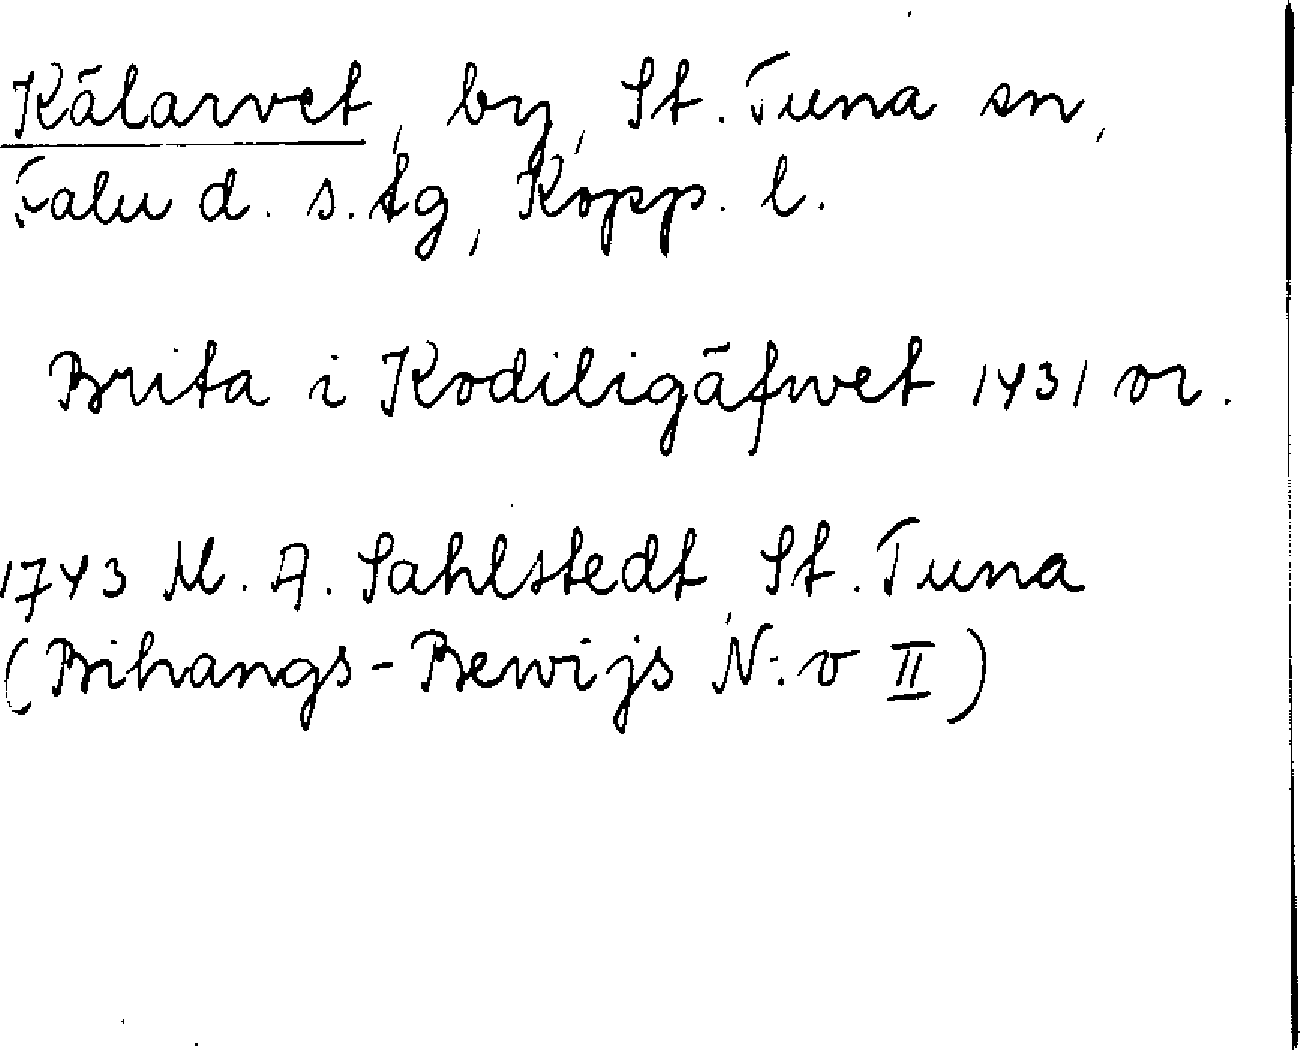 Kålarvet, by, St. Tuna sn,
Falu d. s. tg, Kopp. l.
Brita i Kodiligåfwet 1431 or.
1743 M. A. Sahlstedt, St. Tuna
(Bihangs-Bewijs N:o II)